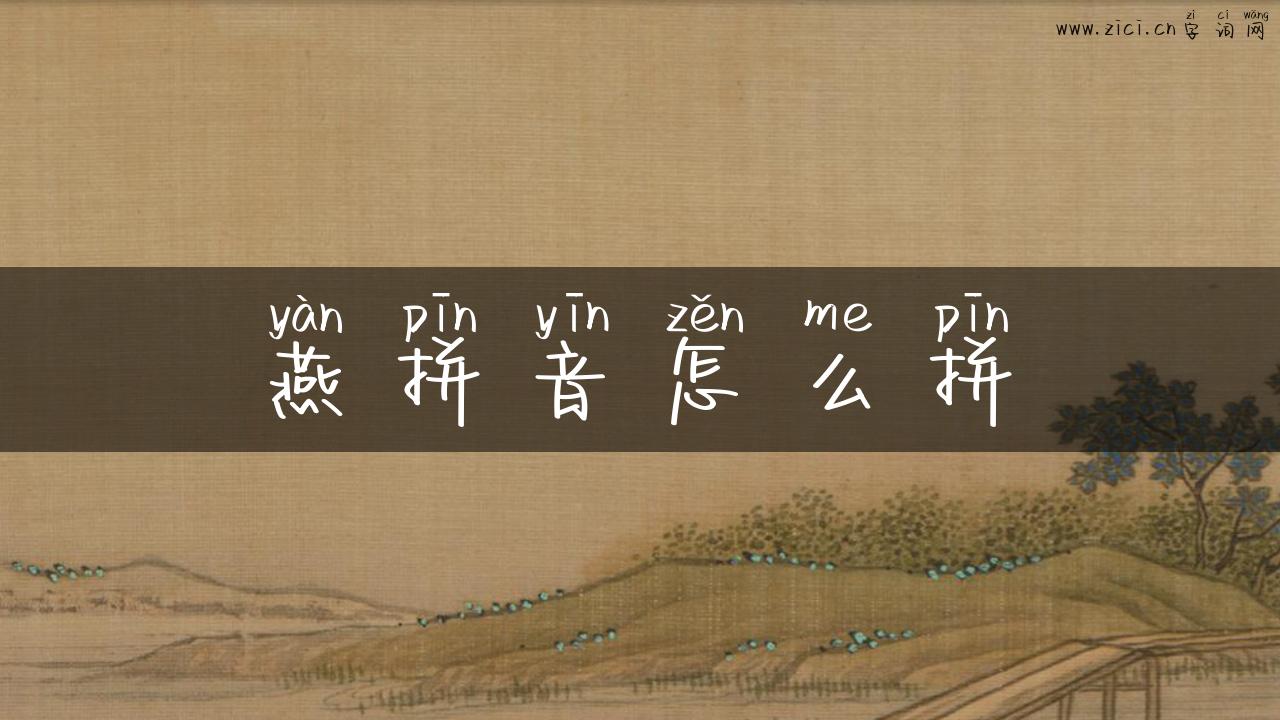 zì cí wǎng
www.zici.cn 字 词 网
yàn pīn yīn zěn me pīn
燕 拼 音 怎 么 拼